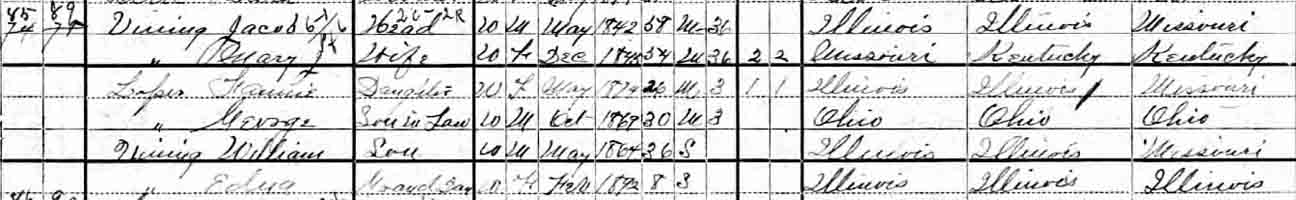 85 89 Vining Jacob Head W M May 1842 58 M 36 Illinois Illinois Missouri
" Mary Wife W F Dec 1845 54 M 36 2 2 Missouri Kentucky Kentucky
Fannie Daughter W F May M 3 1 1 Illinois Illinois Missouri
" George Son in Law W M Oct 1869 30 M 3 Ohio Ohio Ohio
Vining William Son W M May 1864 36 S Illinois Illinois Missouri
" Edna Grand Dau W F Feb 1892 8 S Illinois Illinois Illinois